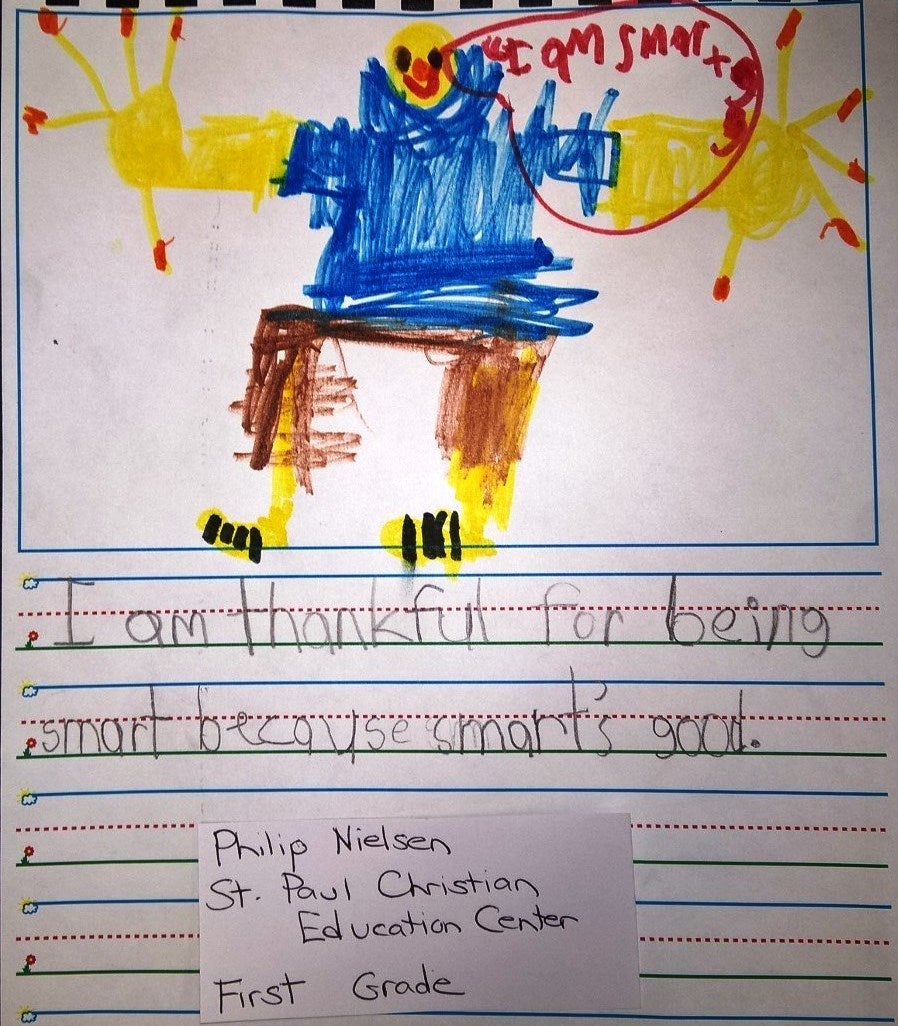 "I am smart"
I am thankful for being
smart because smart's good.
Philip Nielsen
St. Paul Christian
Education Center
First Grade